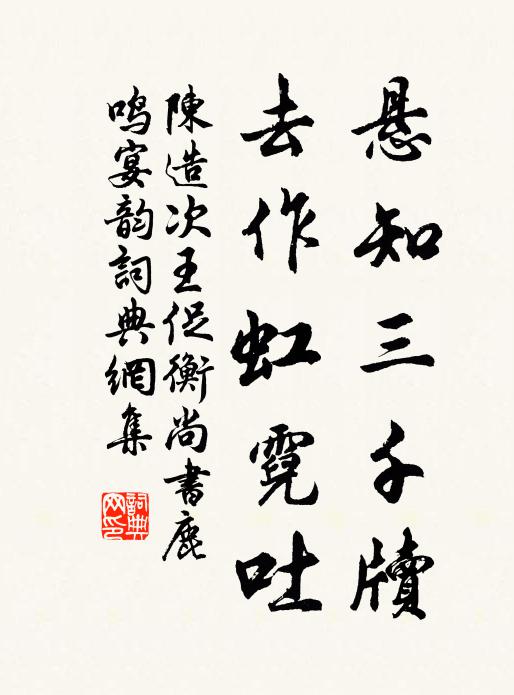 悬知三千牍
去作虹霓吐
陳造次王促衡尚書鹿
鳴宴韵詞典網集
詞典网印